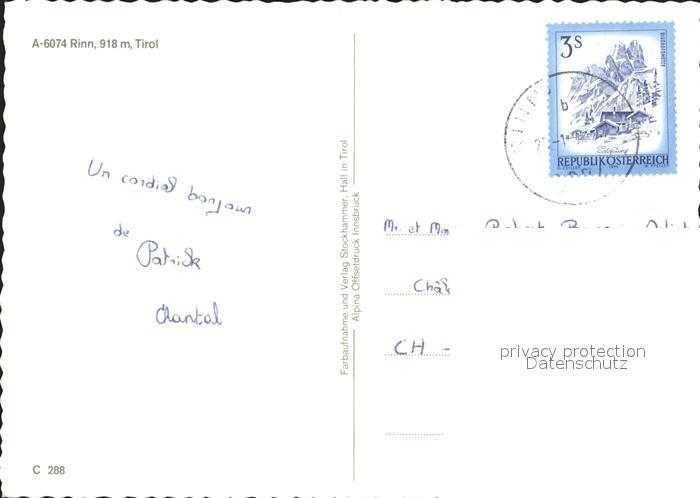 A-6074 Rinn, 918 m, Tirol
Un cordial bonjour
de
Patrick
Chantal
C 288
Farbaufnahme und Verlag Stockhammer, Hall in Tirol
Alpina Offsetdruck Innsbruck
3S
REPUBLIK ÖSTERREICH
Mr. et Mm
CH -
privacy protection
Datenschutz